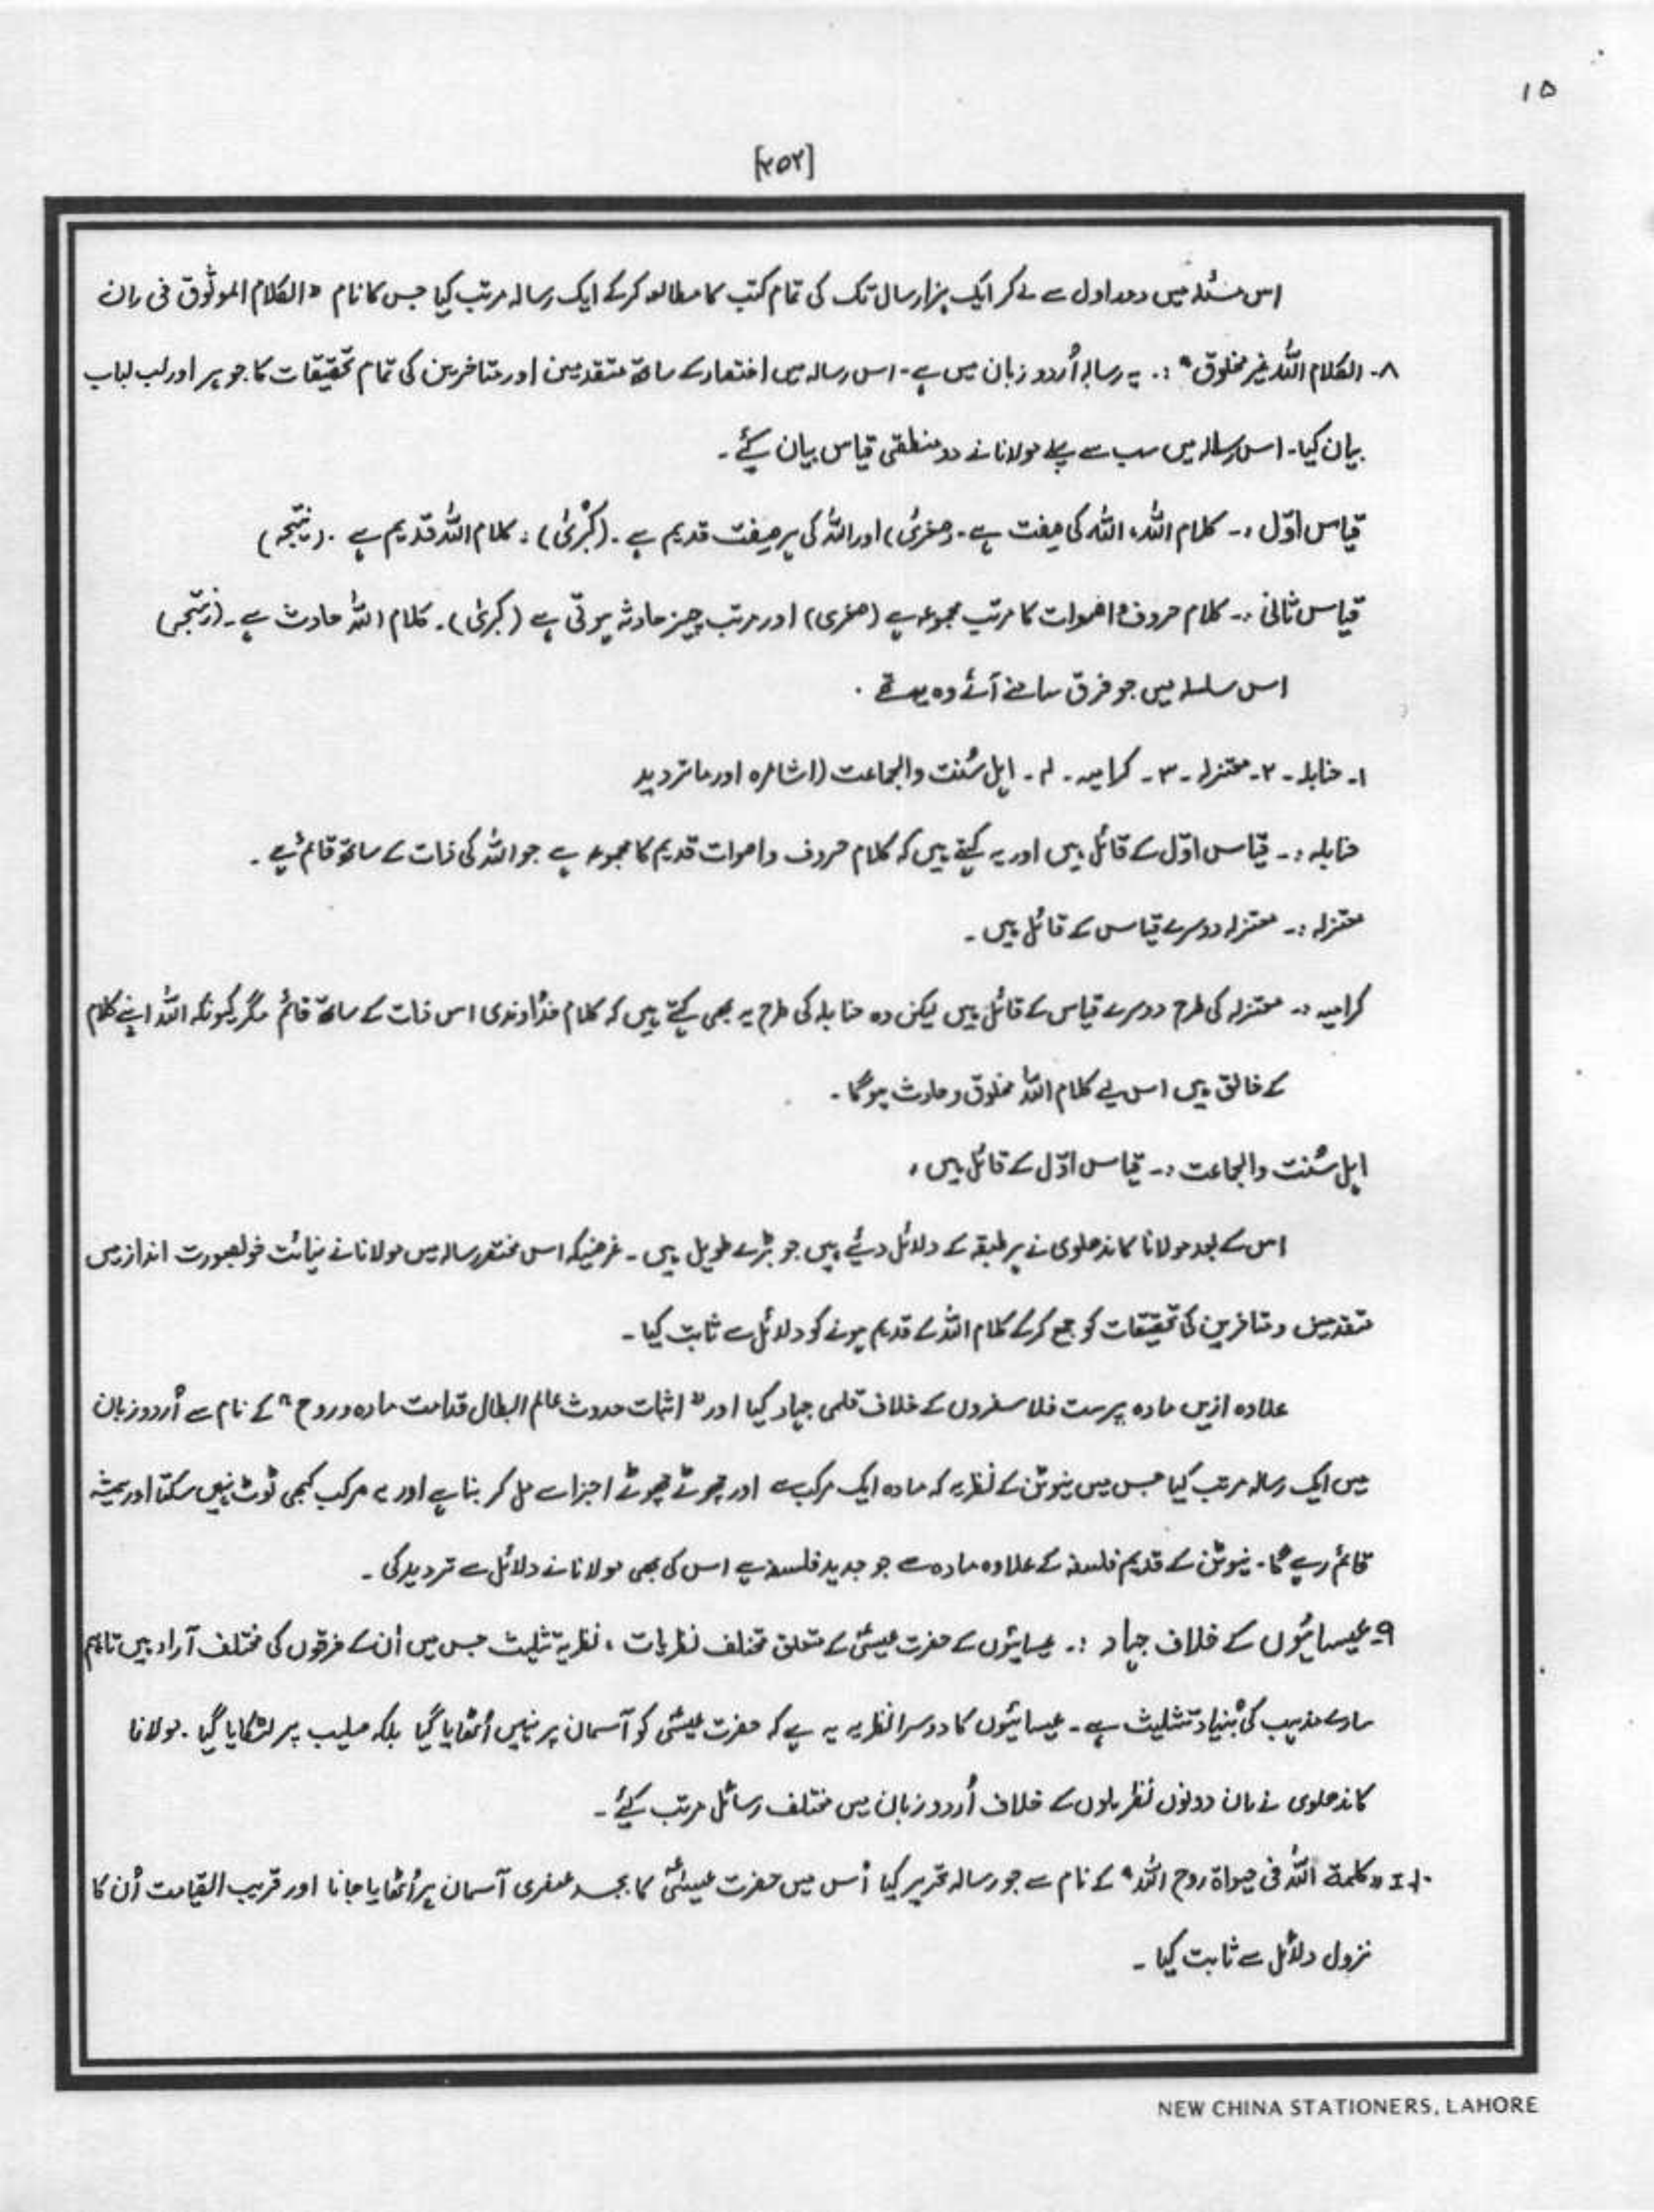 ۱۵
[۲۵۲]
اس مسئلہ میں دور اول سے لے کر ایک ہزار سال تک کی تمام کتب کا مطالعہ کرکے ایک رسالہ مرتب کیا جس کا نام "الکلام الموثوق فی ران
۸- الکلام اللہ غیر مخلوق" :. یہ رسالہ اُردو زبان میں ہے۔ اس رسالہ میں اختصار کے ساتھ متقدمین اور متاخرین کی تمام تحقیقات کا جوہر اور لب لباب
بیان کیا۔ اس رسالہ میں سب سے پہلے مولانا نے دو منطقی قیاس بیان کیے۔
قیاس اوّل :- کلام اللہ، اللہ کی صفت ہے۔ (صغریٰ) اور اللہ کی ہر صفت قدیم ہے۔ (کبریٰ)، کلام اللہ قدیم ہے۔ (نتیجہ)
قیاس ثانی :- کلام حروف و اصوات کا مرتب مجموعہ ہے (صغریٰ) اور مرتب چیز حادثہ ہوتی ہے (کبریٰ)۔ کلام اللہ حادث ہے۔ (نتیجہ)
اس سلسلہ میں جو فرق سامنے آئے وہ یہ تھے ۔
۱- حنابلہ - ۲- معتزلہ - ۳- کرامیہ - ۴- اہل سُنت والجماعت (اشاعرہ اور ماتردید
حنابلہ :- قیاس اوّل کے قائل ہیں اور یہ کہتے ہیں کہ کلام حروف و اصوات قدیم کا مجموعہ ہے جو اللہ کی ذات کے ساتھ قائم ہے ۔
معتزلہ :- معتزلہ دوسرے قیاس کے قائل ہیں ۔
کرامیہ :- معتزلہ کی طرح دوسرے قیاس کے قائل ہیں لیکن وہ حنابلہ کی طرح یہ بھی کہتے ہیں کہ کلام خداوندی اس ذات کے ساتھ قائم مگر کیونکہ اللہ اپنے کلام
کے خالق ہیں اس لیے کلام اللہ مخلوق و حادث ہوگا ۔
اہل سُنت والجماعت :- قیاس اوّل کے قائل ہیں ،
اس کے بعد مولانا کاندھلوی نے ہر طبقہ کے دلائل دیئے ہیں جو بڑے طویل ہیں ۔ غرضیکہ اس مختصر رسالہ میں مولانا نے نہائت خوبصورت انداز میں
متقدمین و متاخرین کی تحقیقات کو جمع کرکے کلام اللہ کے قدیم ہونے کو دلائل سے ثابت کیا ۔
علاوہ ازیں مادہ پرست فلاسفروں کے خلاف قلمی جہاد کیا اور "اثبات حدوث عالم البطال قدامت مادہ و روح" کے نام سے اُردو زبان
میں ایک رسالہ مرتب کیا جس میں نیوٹن کے نظریہ کہ مادہ ایک مرکب ہے اور چھوٹے چھوٹے اجزا سے مل کر بنا ہے اور یہ مرکب کبھی ٹوٹ نہیں سکتا اور ہمیشہ
قائم رہے گا۔ نیوٹن کے قدیم فلسفہ کے علاوہ مادہ سے جو جدید فلسفہ ہے اس کی بھی مولانا نے دلائل سے تردید کی ۔
۹- عیسائیوں کے خلاف جہاد :. عیسائیوں کے حضرت عیسیٰؑ کے متعلق مختلف نظریات ، نظریۂ تثلیث جس میں اُن کے فرقوں کی مختلف آراء ہیں تاہم
سارے مذہب کی بُنیاد تثلیث ہے ۔ عیسائیوں کا دوسرا نظریہ یہ ہے کہ حضرت عیسیٰؑ کو آسمان پر نہیں اُٹھایا گیا بلکہ صلیب پر لٹکایا گیا ۔ مولانا
کاندھلوی نے ان دونوں نظریوں کے خلاف اُردو زبان میں مختلف رسائل مرتب کیئے ۔
۱۰- I "کلمۃ اللہ فی حیواۃ روح اللہ" کے نام سے جو رسالہ تحریر کیا اُس میں حضرت عیسیٰؑ کا بجسد عنصری آسمان پر اُٹھایا جانا اور قریب القیامت اُن کا
نزول دلائل سے ثابت کیا ۔
NEW CHINA STATIONERS, LAHORE